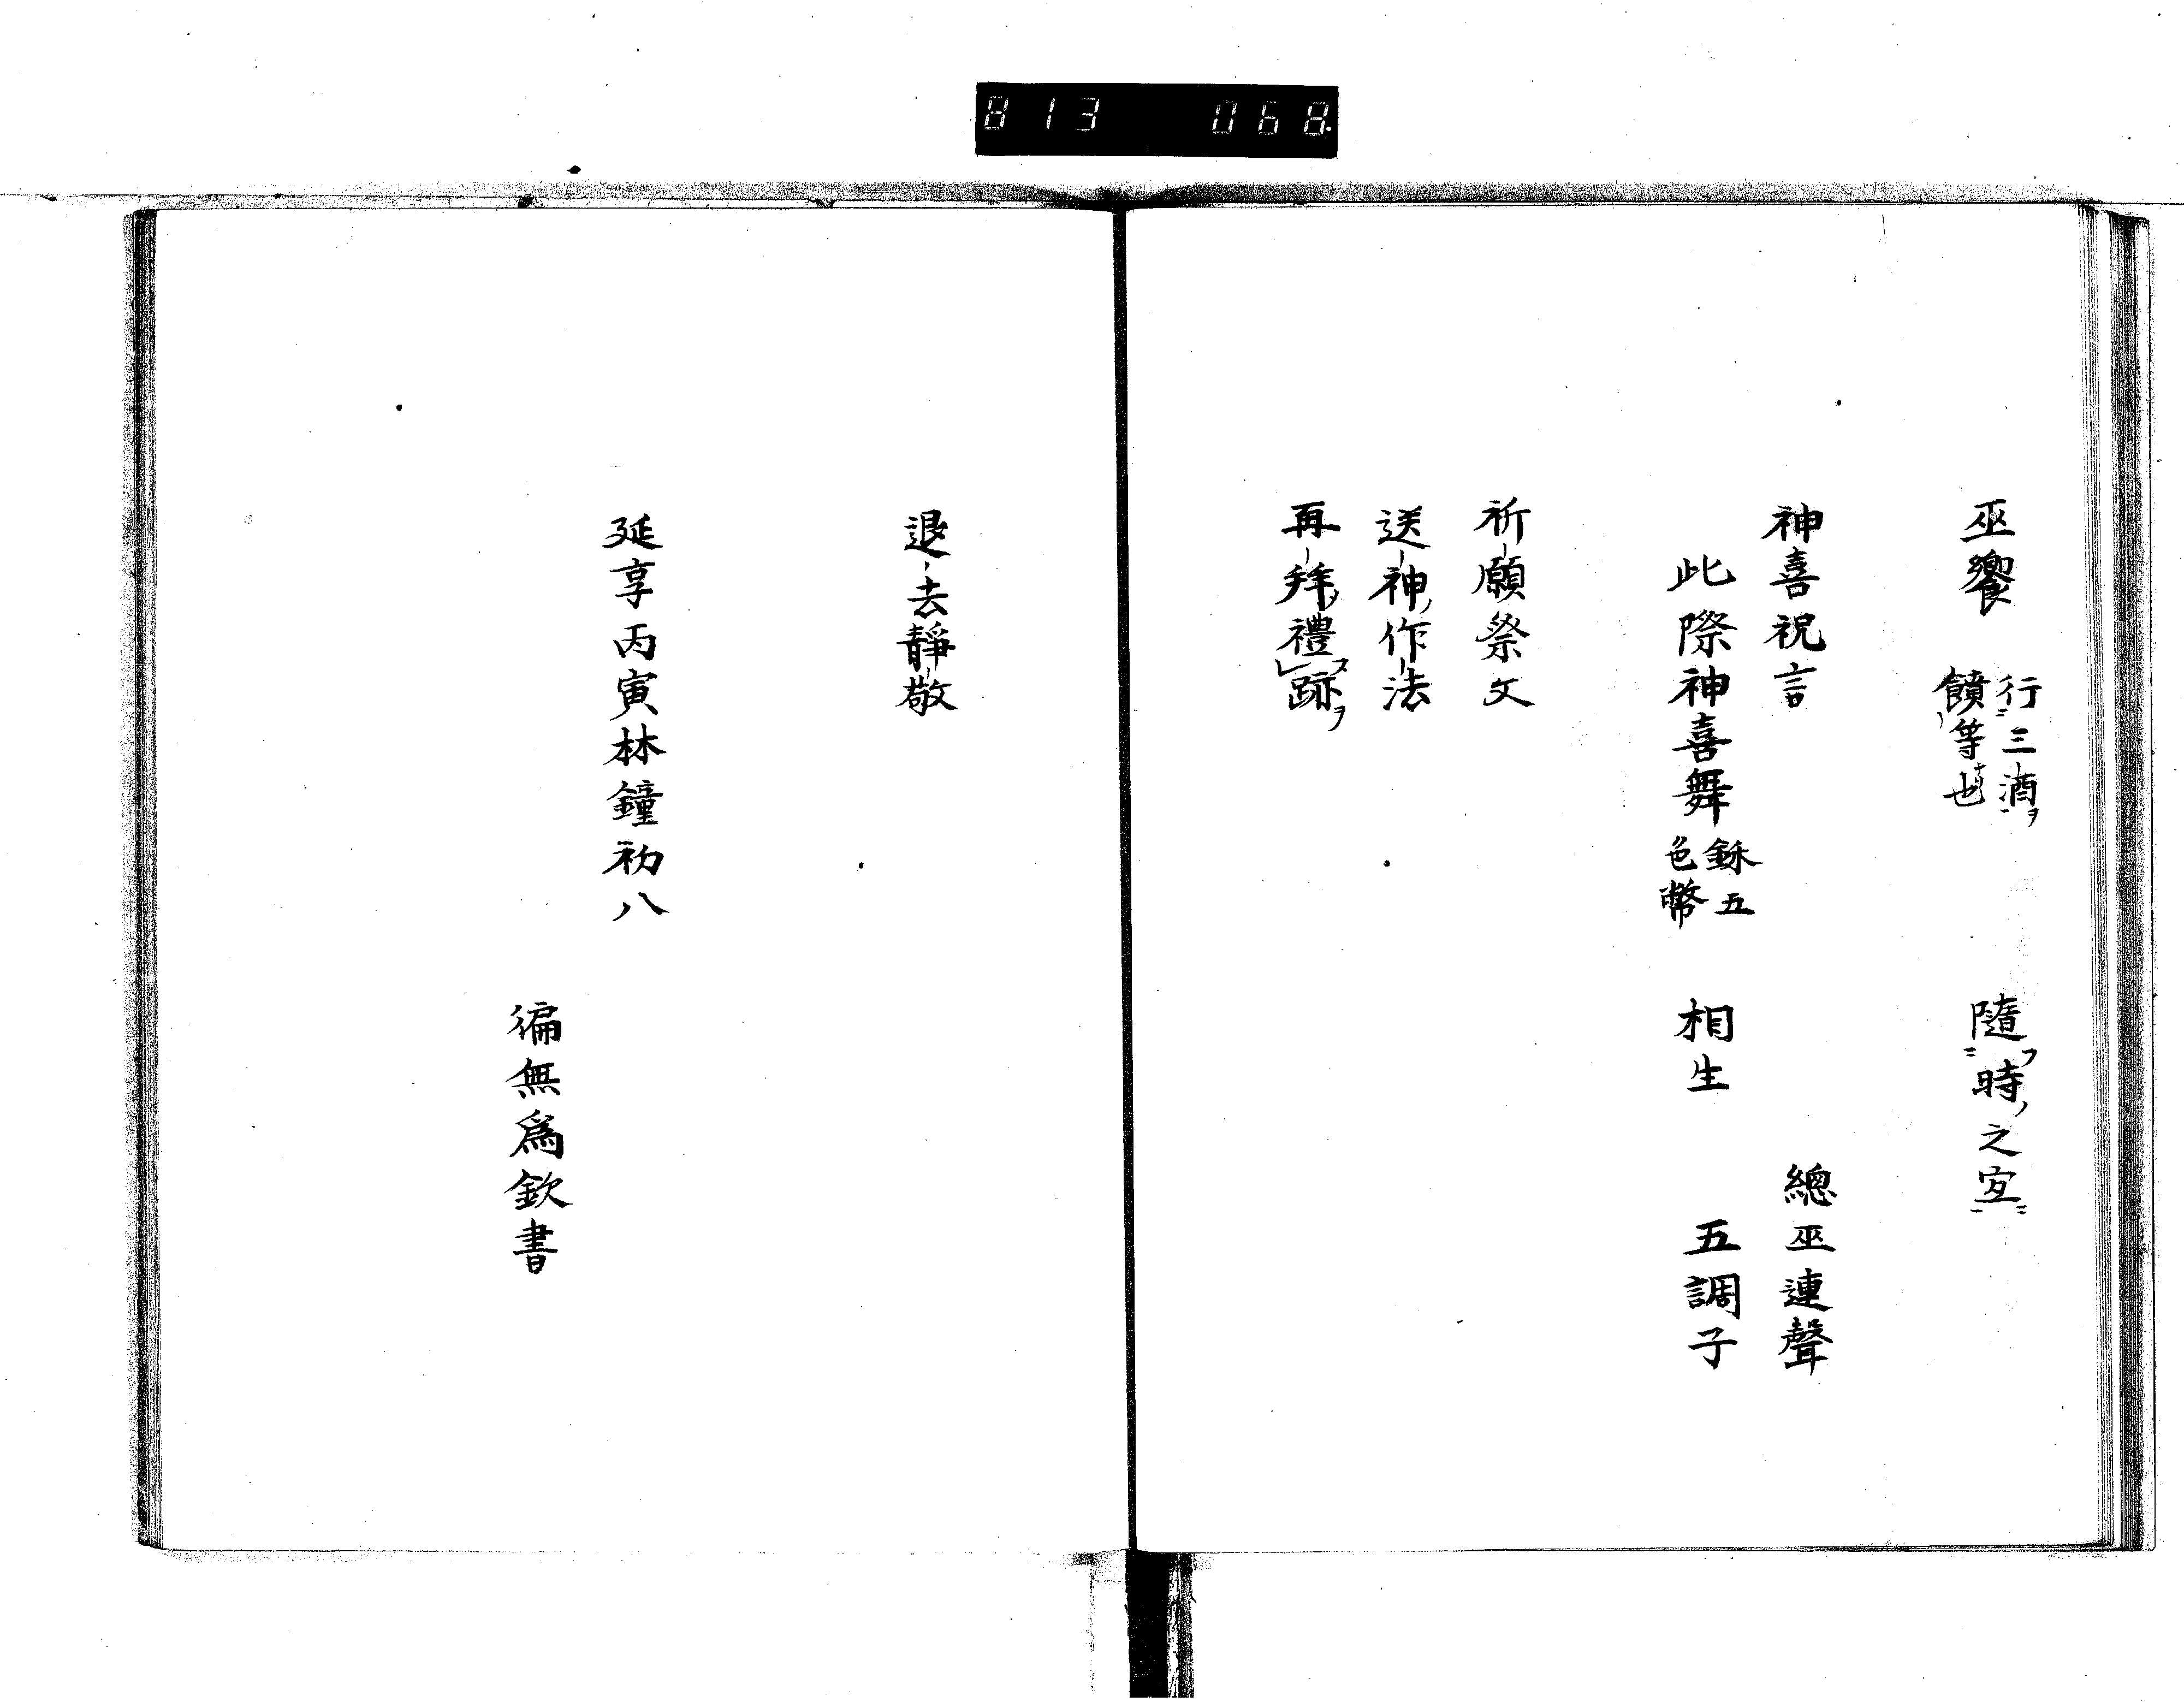 813 068.
巫饗 行三酒ヲ 饋等也 隨時之宜
神喜祝言 總巫連聲
此際神喜舞 鉌五色幣 相生 五調子
祈願祭文
送神作法
再拜禮跡ヲ
退去靜敬
延享丙寅林鐘初八
徧無爲欽書